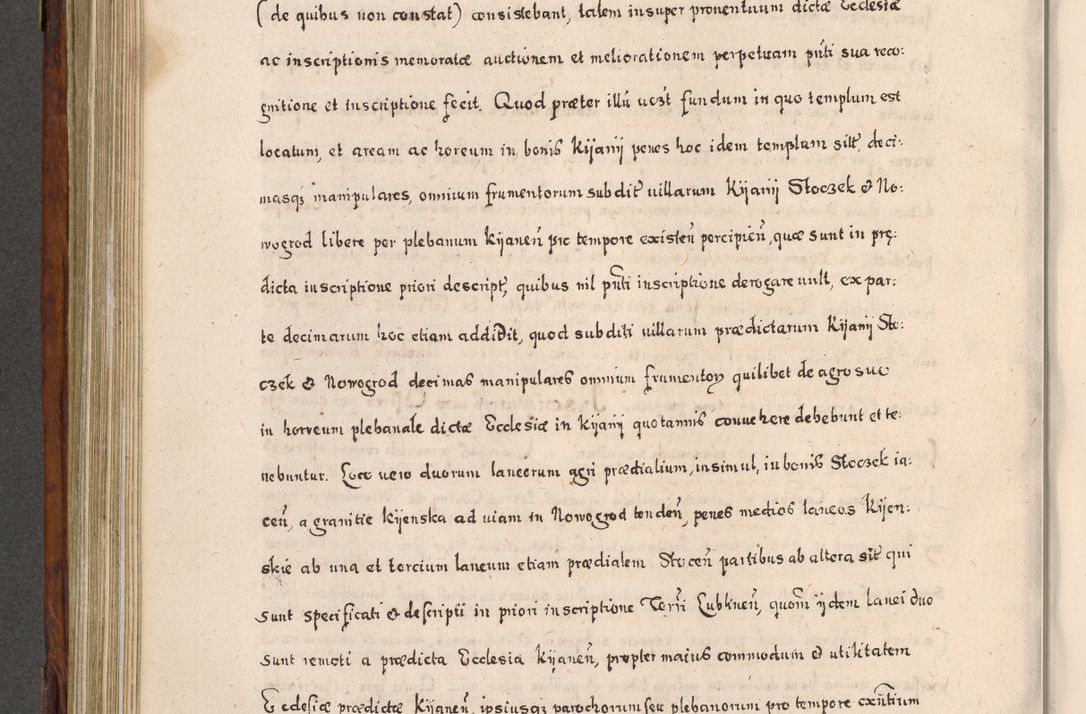 (de quibus non constat) consistebant, talem insuper proventuum dictæ Ecclesiæ
ac inscriptionis memoratæ auctionem et meliorationem perpetuam pñti sua reco:
gnitione et inscriptione fecit. Quod præter illũ vczt fundum in quo templum est
locatum, et aream ac horeum in bonis Kijanij penes hoc idem templum sitt, deci:
masqʒ manipulares, omnium frumentorum subdit villarum Kijanij Stoczek & No:
wogrod libere per plebanum Kijaneñ pro tempore existeñ percipieñ, quæ sunt in præ:
dicta inscriptione priori descript, quibus nil pñti inscriptione derogare vult, ex par:
te decimarum hoc etiam addidit, quod subditi villarum prædictarum Kijanij Sto:
czek & Nowogrod decimas manipulares omnium frumentoꝝ quilibet de agro suo
in horreum plebanale dictæ Ecclesiæ in Kijanij quotannis convehere debebunt et te:
nebuntur. Loco vero duorum laneorum agri prædialium, insimul, in bonis Stoczek ia:
ceñ, a granitie Kijenska ad viam in Nowogrod tendeñ, penes medios laneos Kijen:
skie ab una et tercium laneum etiam prædialem Stoceñ partibus ab altera sit qui
sunt specificati & descripti in priori inscriptione Terrĩ Lubliñeñ, quom ijdem lanei duo
sunt remoti a prædicta Ecclesia Kijaneñ, propter maius commodum & utilitatem
Ecclesiæ prædictæ Kijaneñ, ipsiusqʒ parochorum seu plebanorum pro tempore exñtium